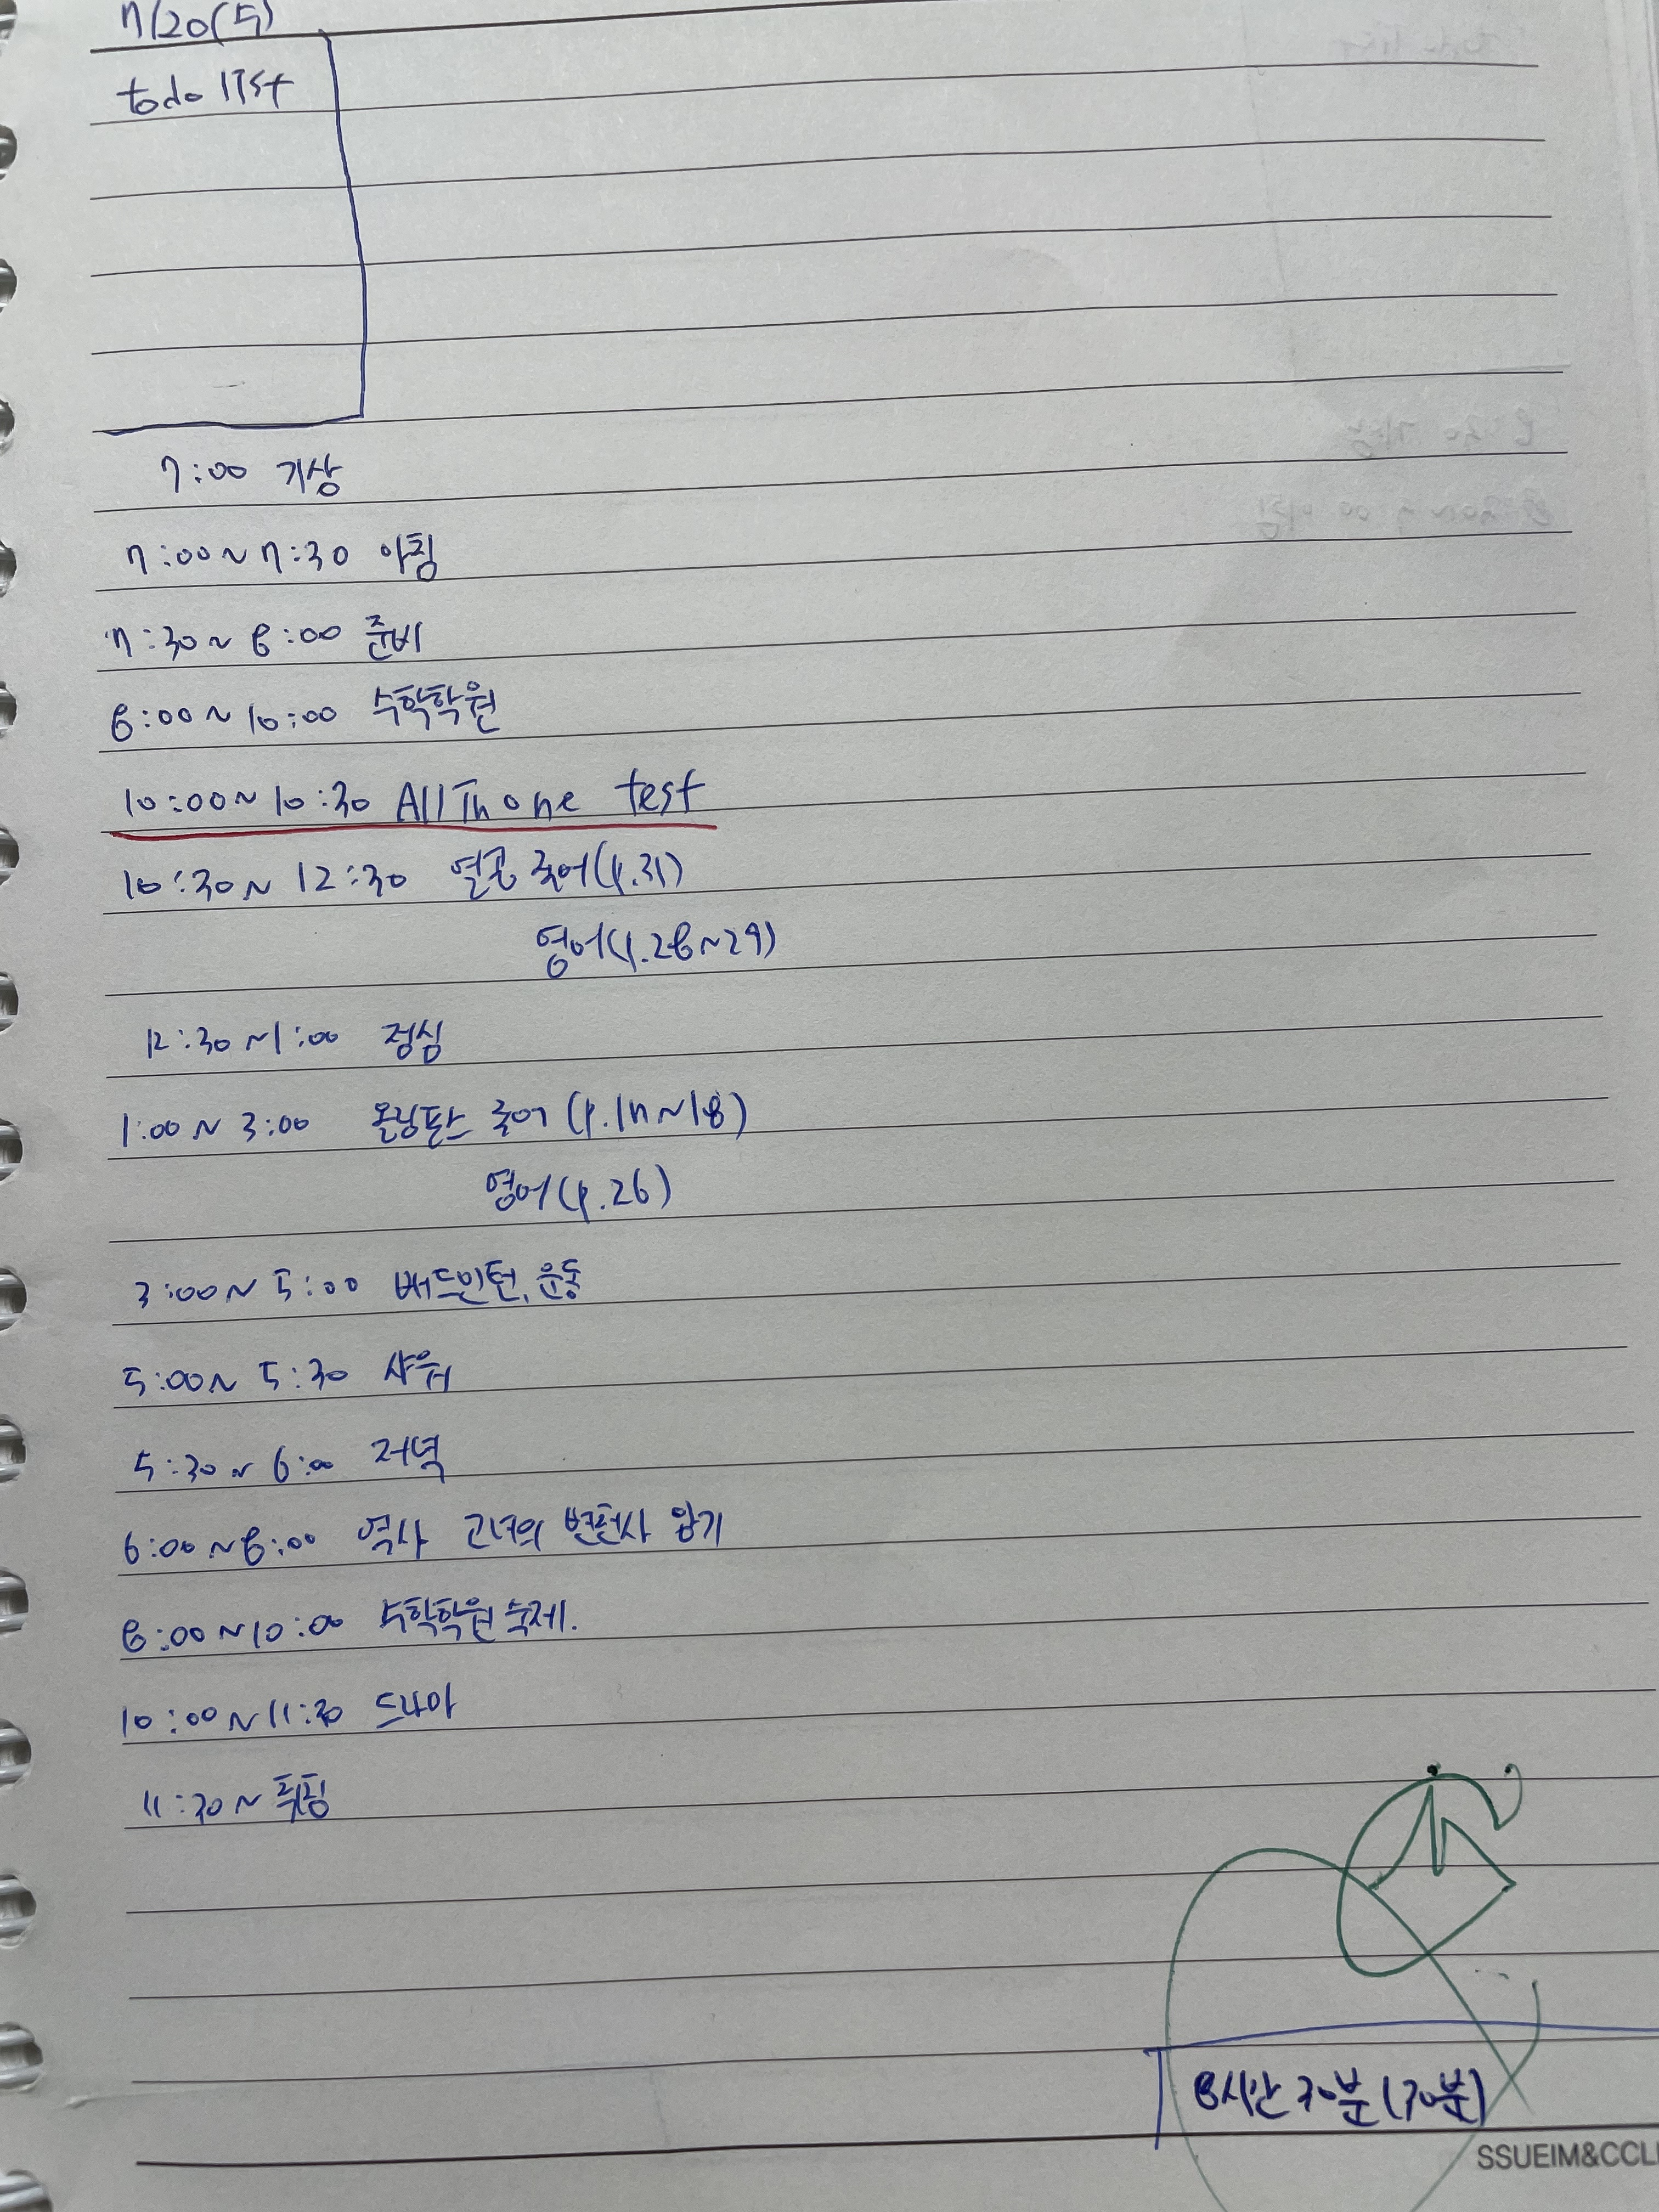 7/20(수)
todo list
7:00 기상
7:00~7:30 아침
7:30~8:00 준비
8:00~10:00 수학학원
10:00~10:30 All In one test
10:30~12:30 열공 국어(p.31)
영어(p.28~29)
12:30~1:00 점심
1:00~3:00 올림포스 국어 (p.17~18)
영어(p.26)
3:00~5:00 배드민턴, 운동
5:00~5:30 샤워
5:30~6:00 저녁
6:00~8:00 역사 고녀의 변천사 암기
8:00~10:00 수학학원 숙제.
10:00~11:30 드라마
11:30~ 취침
8시간 30분 (30분)
SSUEIM&CCLI